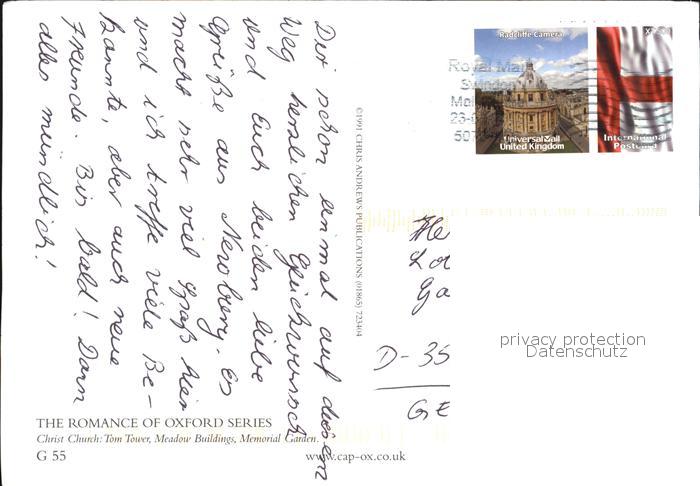 Dir schon einmal auf diesem
Weg herzlichen Glückwunsch
und Euch beiden liebe
Grüße aus Newbery. Es
macht sehr viel Spaß hier
und ich treffe viele Be-
kannte, aber auch neue
Freunde. Bis bald! Dann
alles mündlich!
©1991 CHRIS ANDREWS PUBLICATIONS (01865) 723404
Radcliffe Camera
Universal Mail
United Kingdom
International
Postcard
Royal Mail
Swindon
He
Lo
Ga
D-35
GE
privacy protection
Datenschutz
THE ROMANCE OF OXFORD SERIES
Christ Church: Tom Tower, Meadow Buildings, Memorial Garden.
G 55
www.cap-ox.co.uk